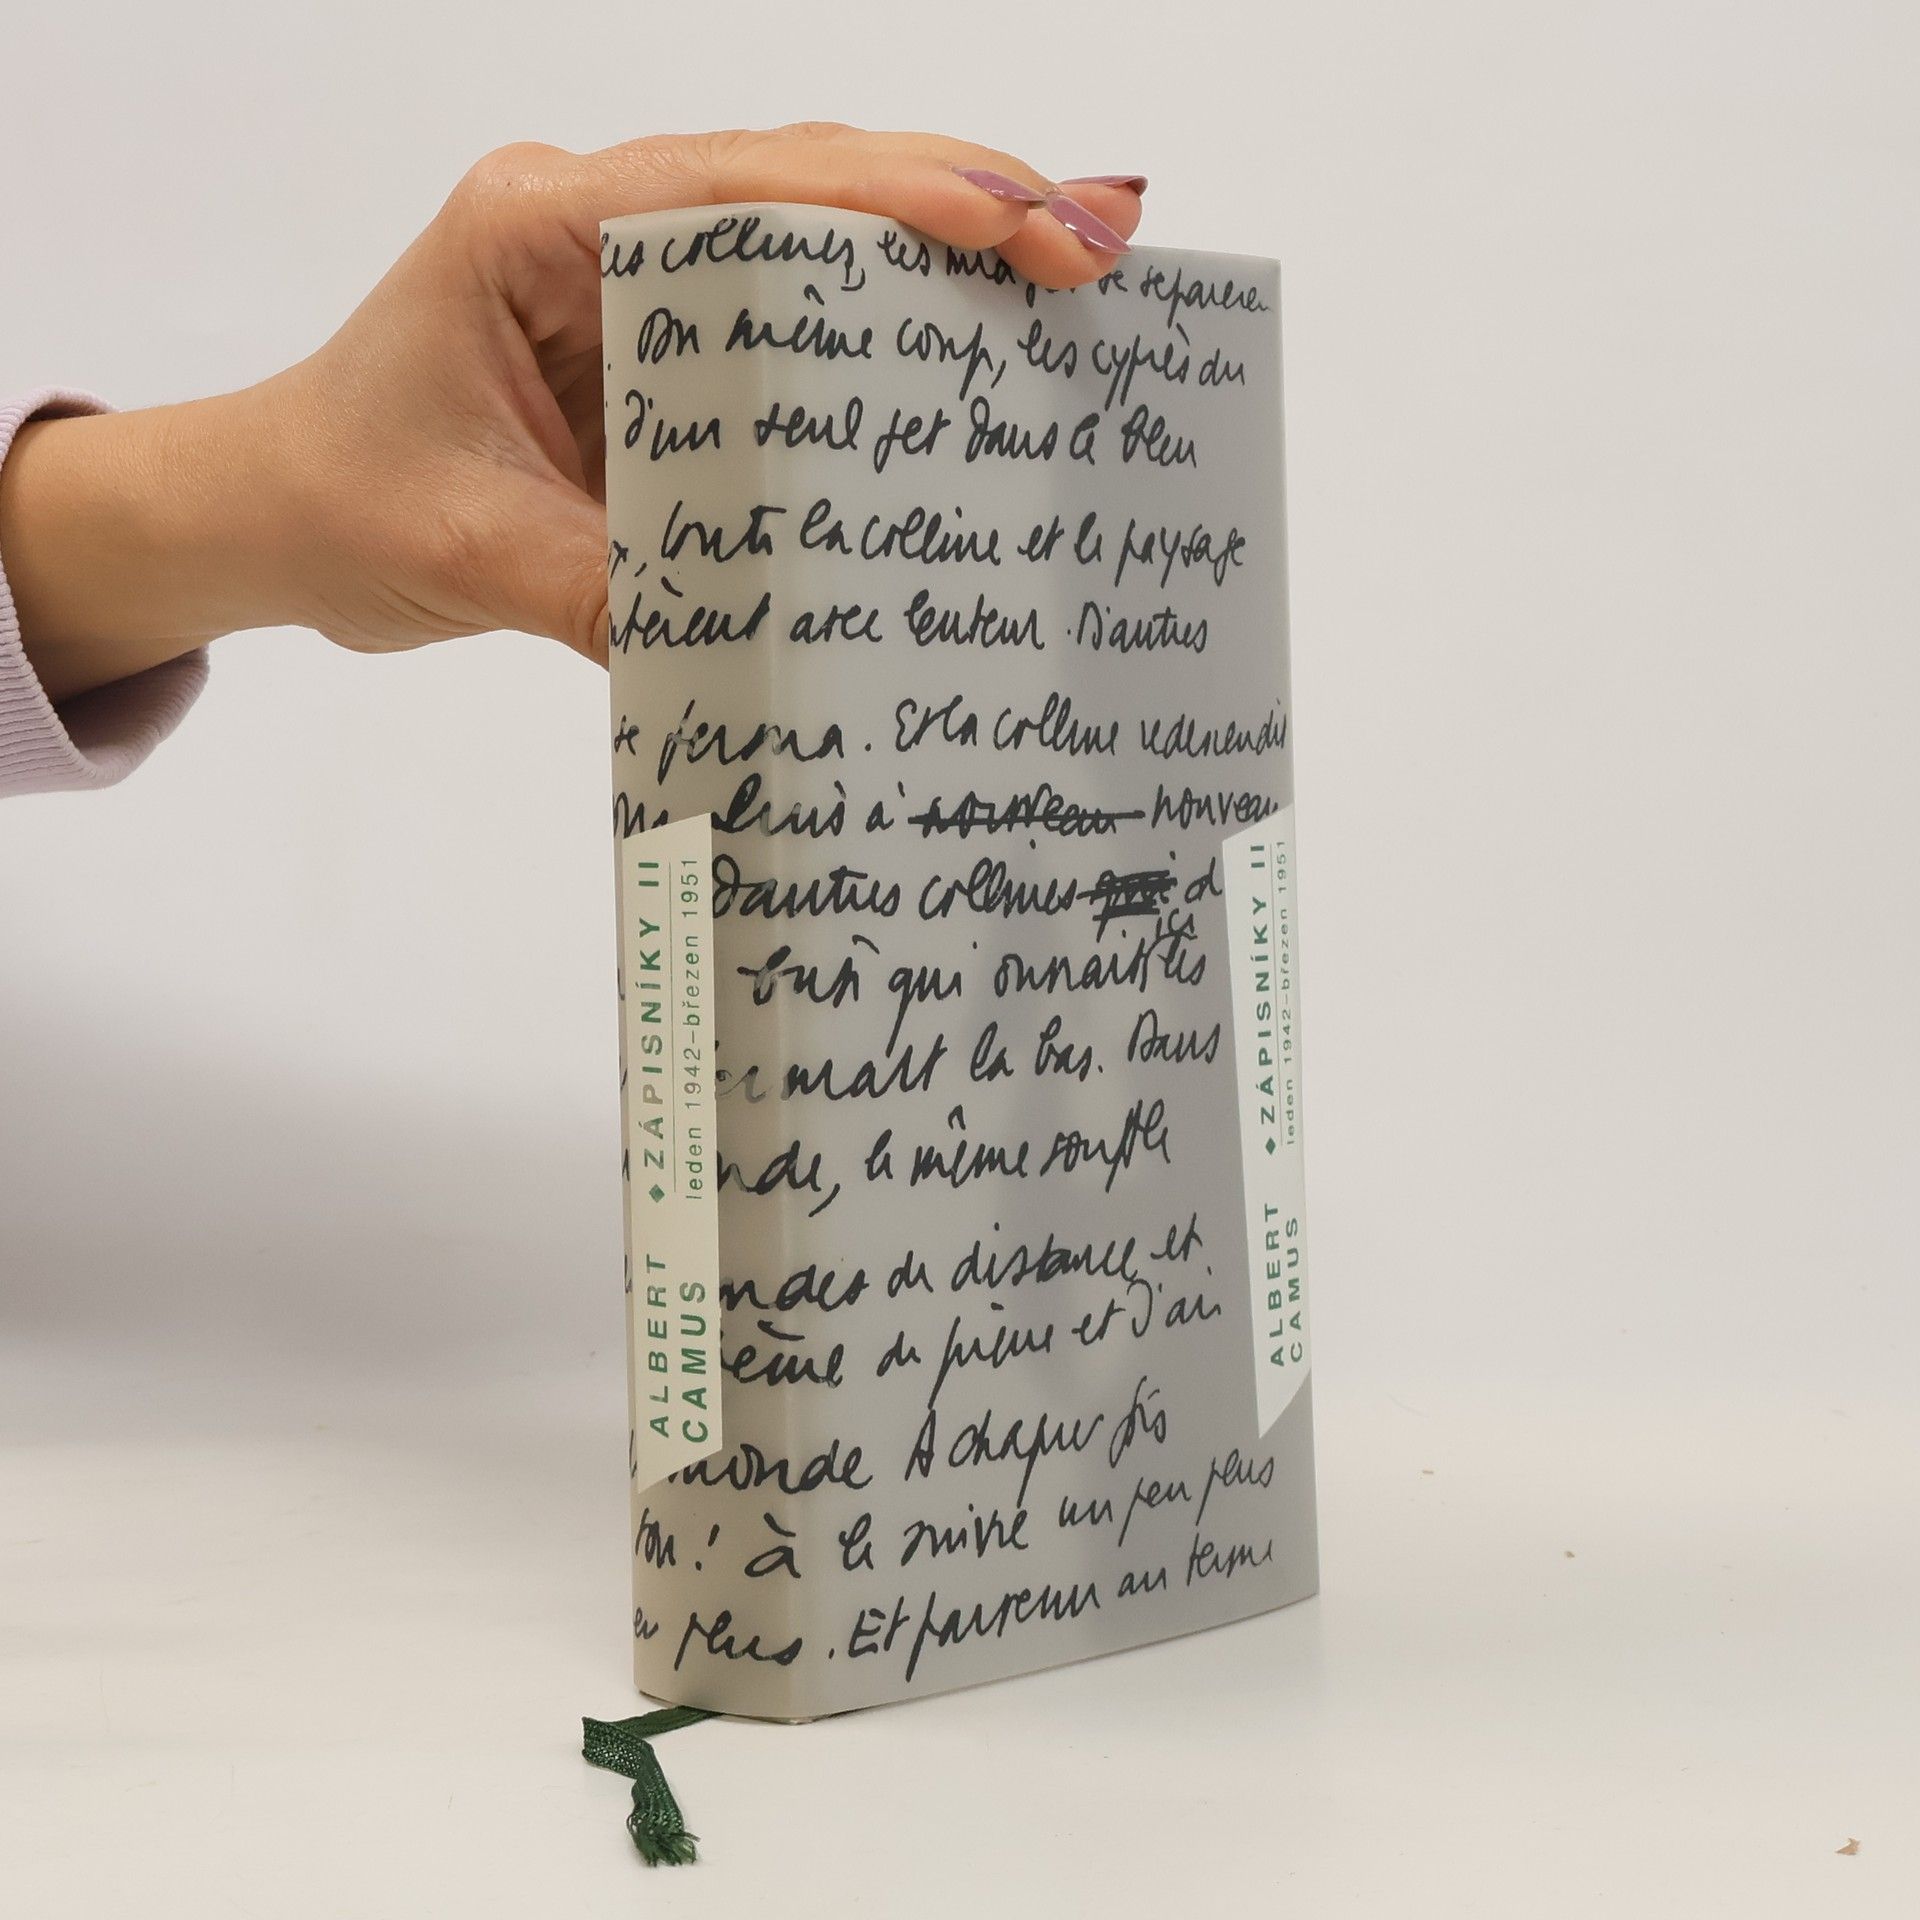 les collines, les se separeren
Du même coup, les cyprès du
d'un seul jet dans le bleu
, toute la colline et le paysage
ntèrent avec lenteur. D'autres
se ferma. Et la colline redescendit
à nouveau nouveau
D'autres collines qui d
qui ouvrait les
ici
la bas. Dans
nde, le même souffle
ndes de distance et
ème de pierre et d'air
monde A chaque fois
! à le suivre un peu plus
plus. Et parvenu au terme
ALBERT
CAMUS
◆ ZÁPISNÍKY II
leden 1942–březen 1951
ALBERT
CAMUS
◆ ZÁPISNÍKY II
leden 1942–březen 1951